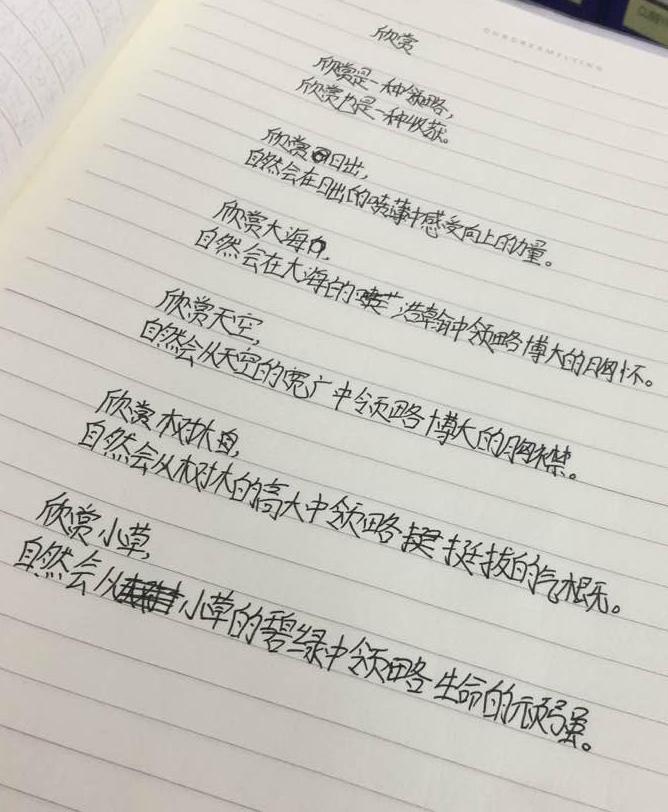 OURDREAMFLYING
欣赏
欣赏是一种领略,
欣赏力是一种收获。
欣赏日出,
自然会在日出的喷薄中感受向上的力量。
欣赏大海,
自然会在大海的浩瀚中领略博大的胸怀。
欣赏天空,
自然会从天空的宽广中领略博大的胸襟。
欣赏树木,
自然会从树木的高大中领略挺拔的气概。
欣赏小草,
自然会从小草的碧绿中领略生命的顽强。